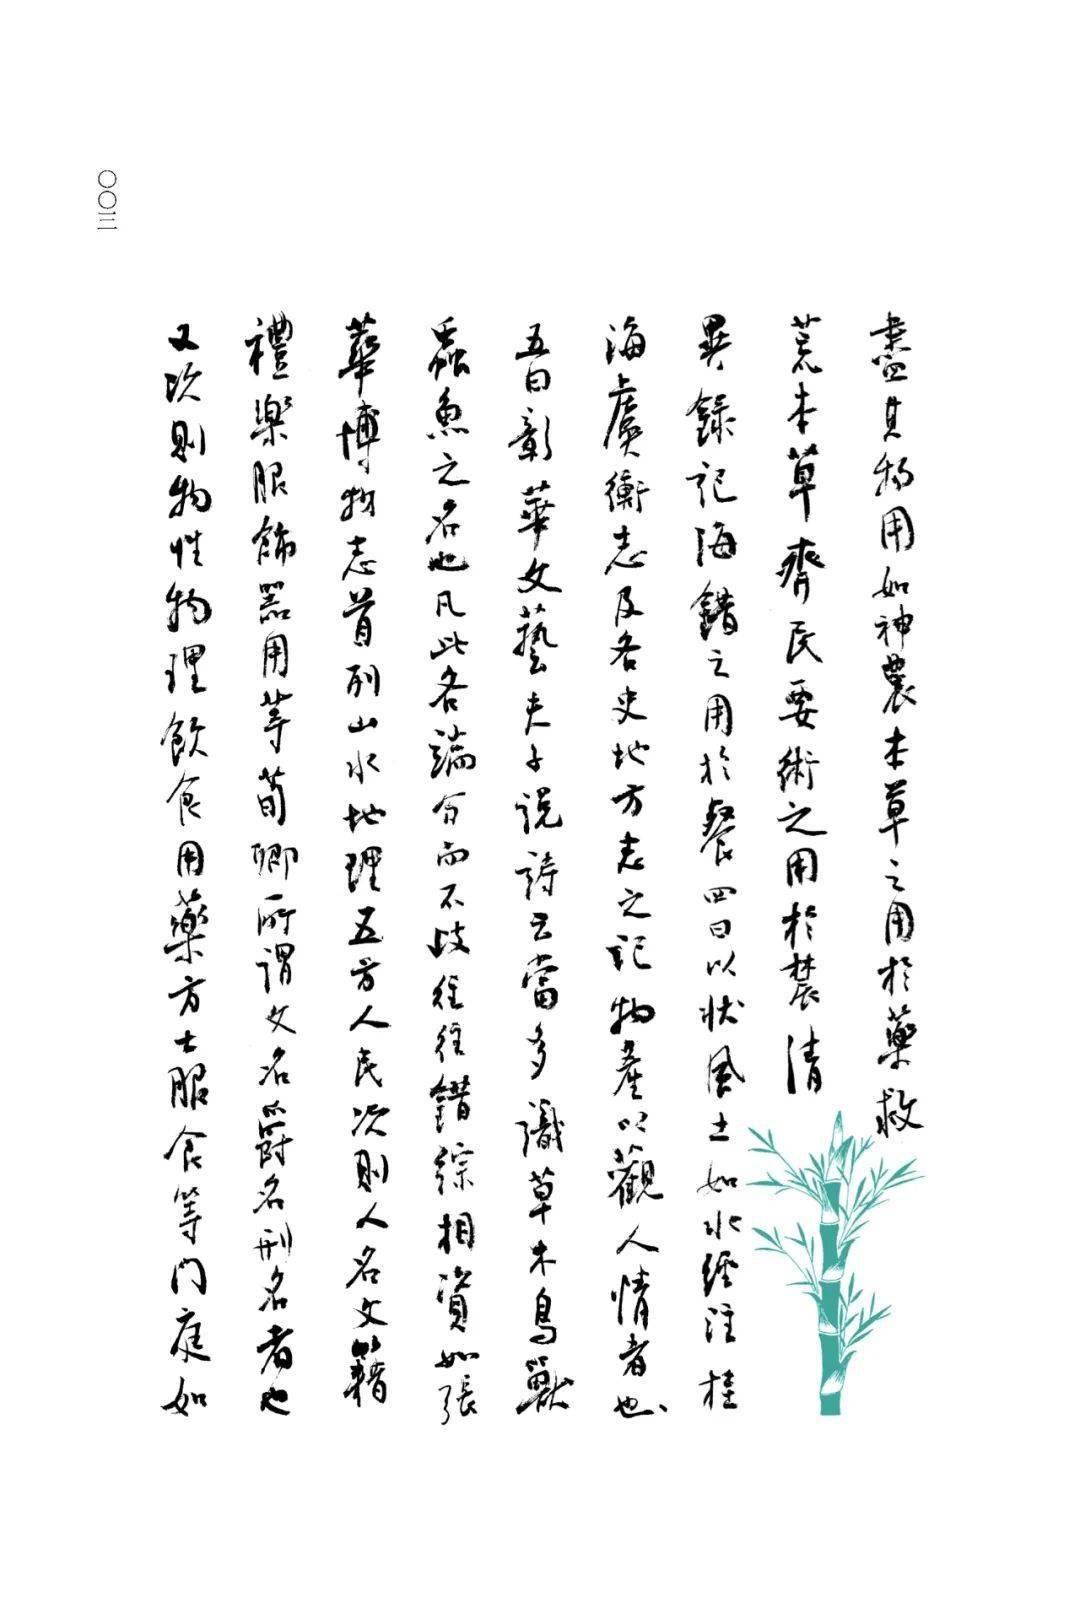 盡其物用如神農本草之用於藥救
荒本草齊民要術之用於農清
異錄記海錯之用於餐四曰以狀風土如水經注桂
海虞衡志及各史地方志之記物產以觀人情者也
五曰彰華文藝夫子說詩云當多識草木鳥獸
蟲魚之名也凡此各端分而不歧往往錯綜相資如張
華博物志首列山水地理五方人民次則人名文籍
禮樂服飾器用等荀卿所謂文名爵名刑名者也
又次則物性物理飲食用藥方士服食等門庭如
〇〇三